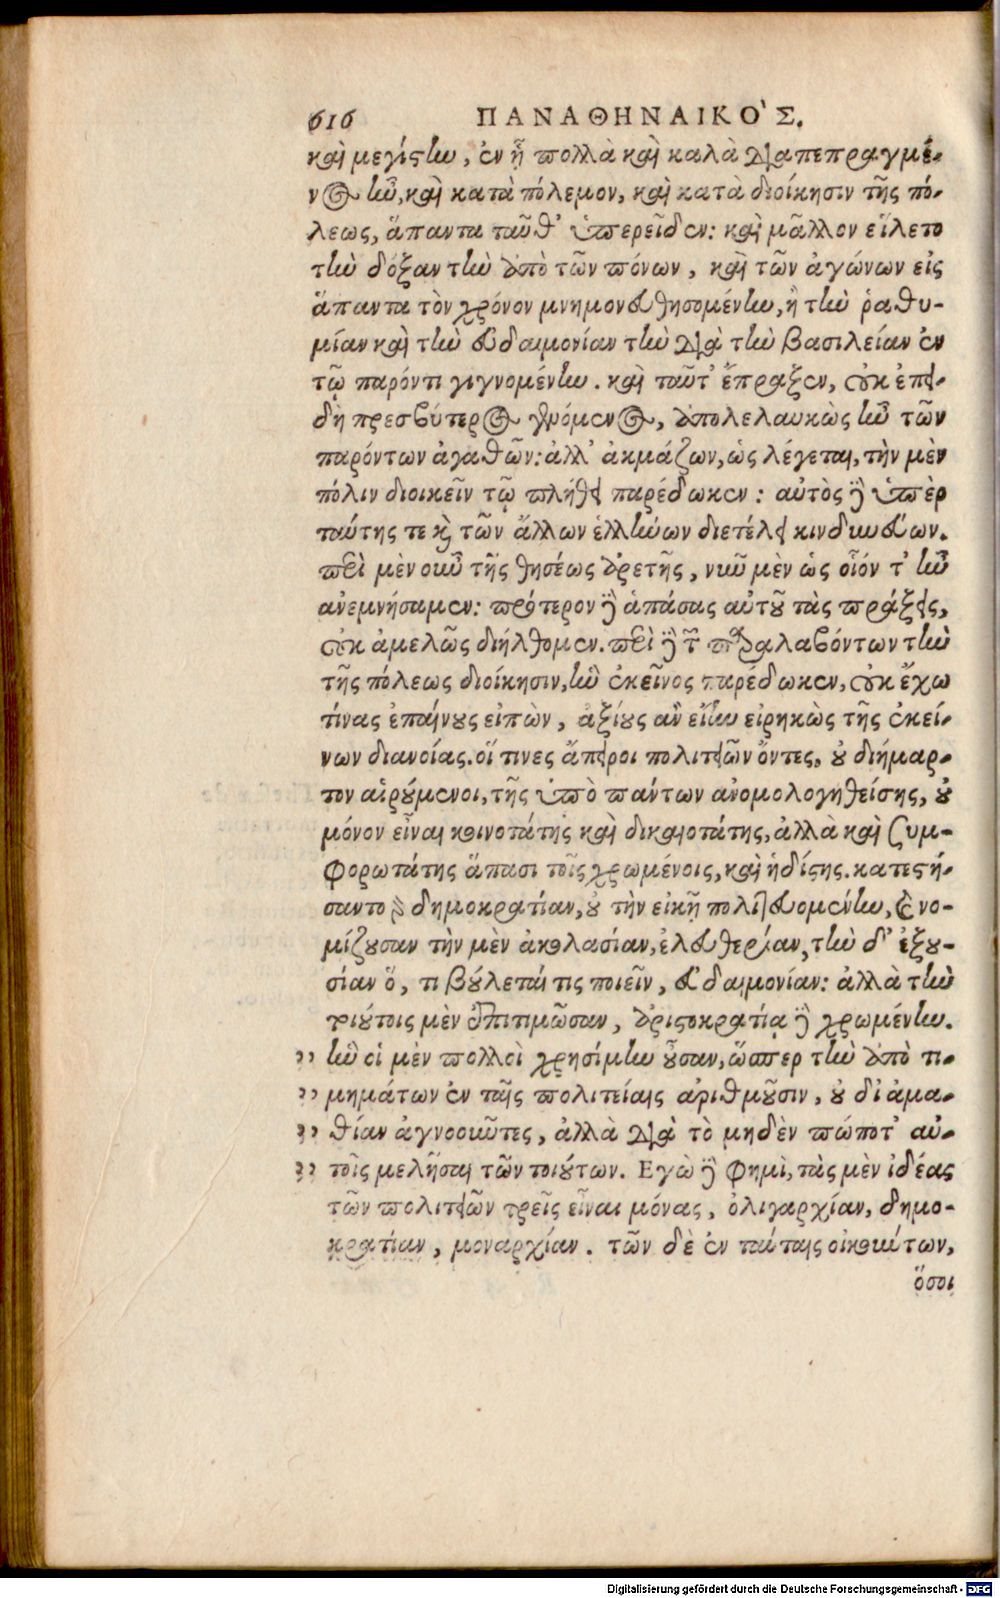 616 ΠΑΝΑΘΗΝΑΙΚΟ᾽Σ.
καὶ μεγίστην, ἐν ᾗ πολλὰ καὶ καλὰ διαπεπραγμέ-
νος ἦν, καὶ κατὰ πόλεμον, καὶ κατὰ διοίκησιν τῆς πό-
λεως, ἅπαντα ταῦθ᾽ ὑπερεῖδεν: καὶ μᾶλλον εἵλετο
τὴν δόξαν τὴν ἀπὸ τῶν πόνων, καὶ τῶν ἀγώνων εἰς
ἅπαντα τὸν χρόνον μνημονευθησομένην, ἢ τὴν ῥαθυ-
μίαν καὶ τὴν εὐδαιμονίαν τὴν διὰ τὴν βασιλείαν ἐν
τῷ παρόντι γιγνομένην. καὶ ταῦτ᾽ ἔπραξεν, οὐκ ἐπει-
δὴ πρεσβύτερος γενόμενος, ἀπολελαυκὼς ἦν τῶν
παρόντων ἀγαθῶν: ἀλλ᾽ ἀκμάζων, ὡς λέγεται, τὴν μὲν
πόλιν διοικεῖν τῷ πλήθει παρέδωκεν: αὐτὸς δὲ ὑπὲρ
ταύτης τε καὶ τῶν ἄλλων ἑλλήνων διετέλει κινδυνεύων.
περὶ μὲν οὖν τῆς θησέως ἀρετῆς, νῦν μὲν ὡς οἷόν τ᾽ ἦν
ἀνεμνήσαμεν: πρότερον δὲ ἁπάσας αὐτοῦ τὰς πράξεις,
οὐκ ἀμελῶς διήλθομεν. περὶ δὲ τῶν παραλαβόντων τὴν
τῆς πόλεως διοίκησιν, ἣν ἐκεῖνος παρέδωκεν, οὐκ ἔχω
τίνας ἐπαίνους εἰπὼν, ἀξίους ἂν εἴην εἰρηκὼς τῆς ἐκεί-
νων διανοίας. οἵ τινες ἄπειροι πολιτειῶν ὄντες, οὐ διήμαρ-
τον αἱρούμενοι, τῆς ὑπὸ πάντων ἀνομολογηθείσης, οὐ
μόνον εἶναι κοινοτάτης καὶ δικαιοτάτης, ἀλλὰ καὶ συμ-
φορωτάτης ἅπασι τοῖς χρωμένοις, καὶ ἡδίστης. κατεστή-
σαντο γὰρ δημοκρατίαν, οὐ τὴν εἰκῆ πολιτευομένην, καὶ νο-
μίζουσαν τὴν μὲν ἀκολασίαν, ἐλευθερίαν, τὴν δ᾽ ἐξου-
σίαν ὅ, τι βούλεταί τις ποιεῖν, εὐδαιμονίαν: ἀλλὰ τὴν
τοιούτοις μὲν ἐπιτιμῶσαν, ἀριστοκρατίᾳ δὲ χρωμένην.
,, ἣν οἱ μὲν πολλοὶ χρησίμην οὖσαν, ὥσπερ τὴν ἀπὸ τι-
,, μημάτων ἐν ταῖς πολιτείαις ἀριθμοῦσιν, οὐ δι᾽ ἀμα-
,, θίαν ἀγνοοῦντες, ἀλλὰ διὰ τὸ μηδὲν πώποτ᾽ αὐ-
,, τοῖς μελῆσαι τῶν τοιούτων. Εγὼ δὲ φημὶ, τὰς μὲν ἰδέας
τῶν πολιτειῶν τρεῖς εἶναι μόνας, ὀλιγαρχίαν, δημο-
κρατίαν, μοναρχίαν. τῶν δὲ ἐν ταύταις οἰκούντων,
ὅσοι
Digitalisierung gefördert durch die Deutsche Forschungsgemeinschaft - DFG